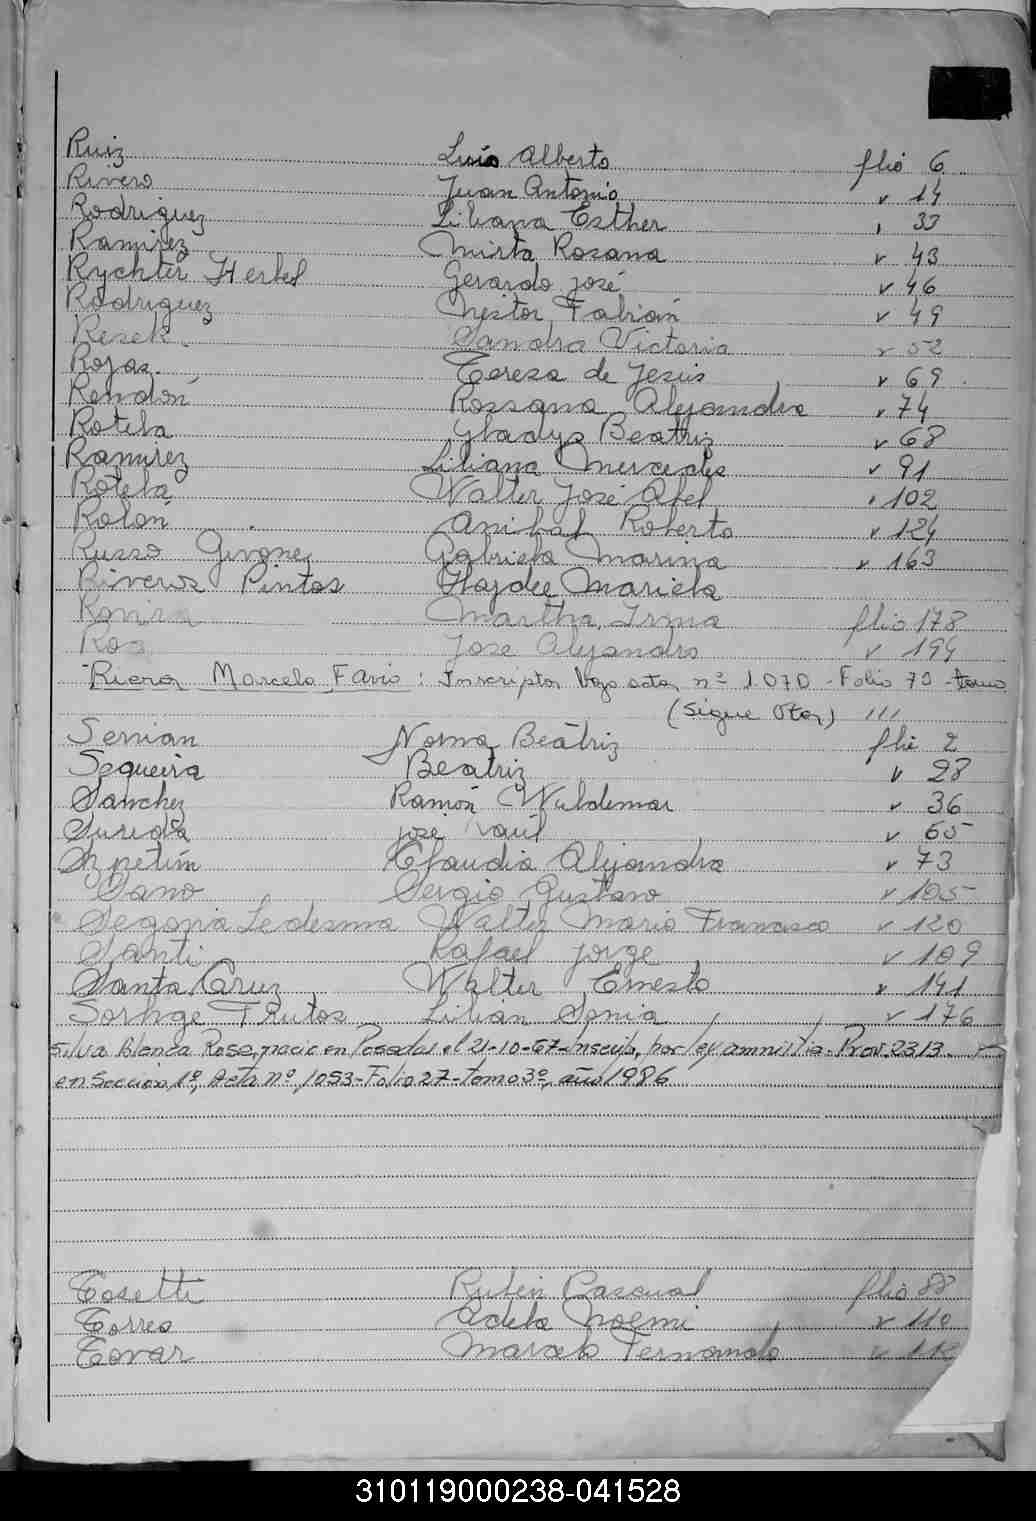 Ruiz Luis Alberto flio 6
Rivero Juan Antonio v 14
Rodriguez Liliana Esther , 33
Ramirez Mirta Rosana v 43
Rychter Herbel Gerardo José v 46
Rodriguez Nestor Fabián v 49
Resek. Sandra Victoria v 52
Rojas. Tereza de Jesús v 69
Rendón Rossana Alejandra v 74
Rotela Gladys Beatriz v 68
Ramirez Liliana Mercedes v 91
Rotela Walter José Abel , 102
Rolón Anibal Roberto v 124
Russo Gabriela Marina v 163
Riveros Pintos Haydee Mariela
Martha Irma flio 178
José Alejandro v 194
Marcelo Favio : Inscripto nº 1.070 - Folio 70 - tomo
(Sigue Otra) ///
Norma Beatriz flio 2
Sequeira Beatriz v 28
Sanchez Ramón Waldemar v 36
Sureda José Raúl v 65
Claudia Alejandra v 73
Sano Sergio Gustavo v 105
Segovia Ledesma Walter Mario Francisco v 120
Santi Rafael Jorge v 109
Santa Cruz Walter Ernesto v 141
Frutos Lilian Sonia v 176
Silva Blanca Rosa, nacio en Posadas el 21-10-67- Inscrip, por ley amnistia. Prov. 2313.
en Sección 1º, Acta nº 1053 - Folio 27 - tomo 3º, año 1986
Tosetti Rubén Pascual flio 88
Torres Adela Noemi v 110
Tovar Marcelo Fernando v
310119000238-041528